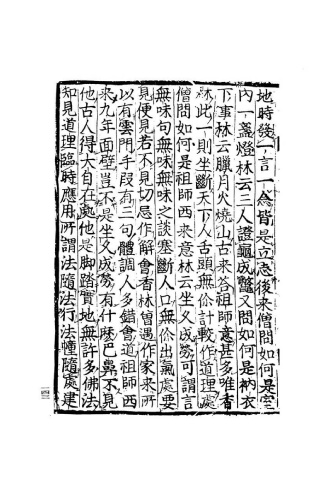 地時後一言一為皆是立志後來僧問如何是室
內一盞燈林云三人證龜成鱉又問如何是衲衣
下事林云臘月火燒山古來答祖師意甚多唯香
林此一則坐斷天下人舌頭無伱計較作道理處
僧問如何是祖師西來意林云坐久成勞可謂言
無味句無味無味之談塞斷人口無伱出氣處要
見便見若不見切忌作解會香林曾遇作家來所
以有雲門手段有三句體調人多錯會道祖師西
來九年面壁豈不是坐久成勞有什麼巴鼻不見
他古人得大自在處他是脚踏實地無許多佛法
知見道理臨時應用所謂法隨法行法幢隨處建